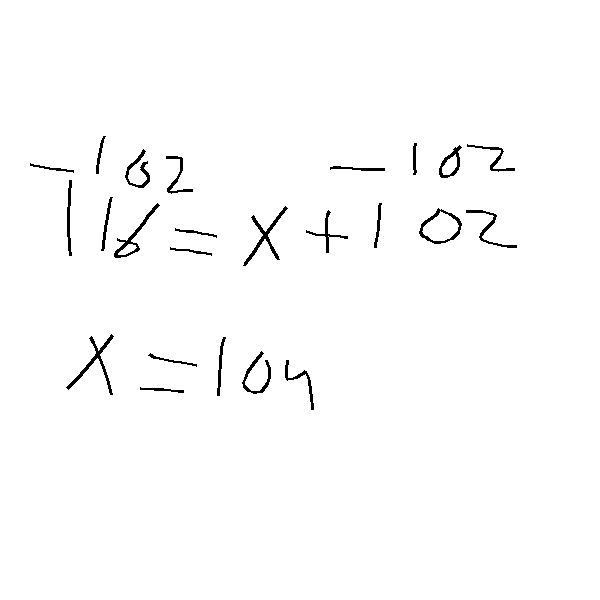 -102 -102
116=x+102
x=104